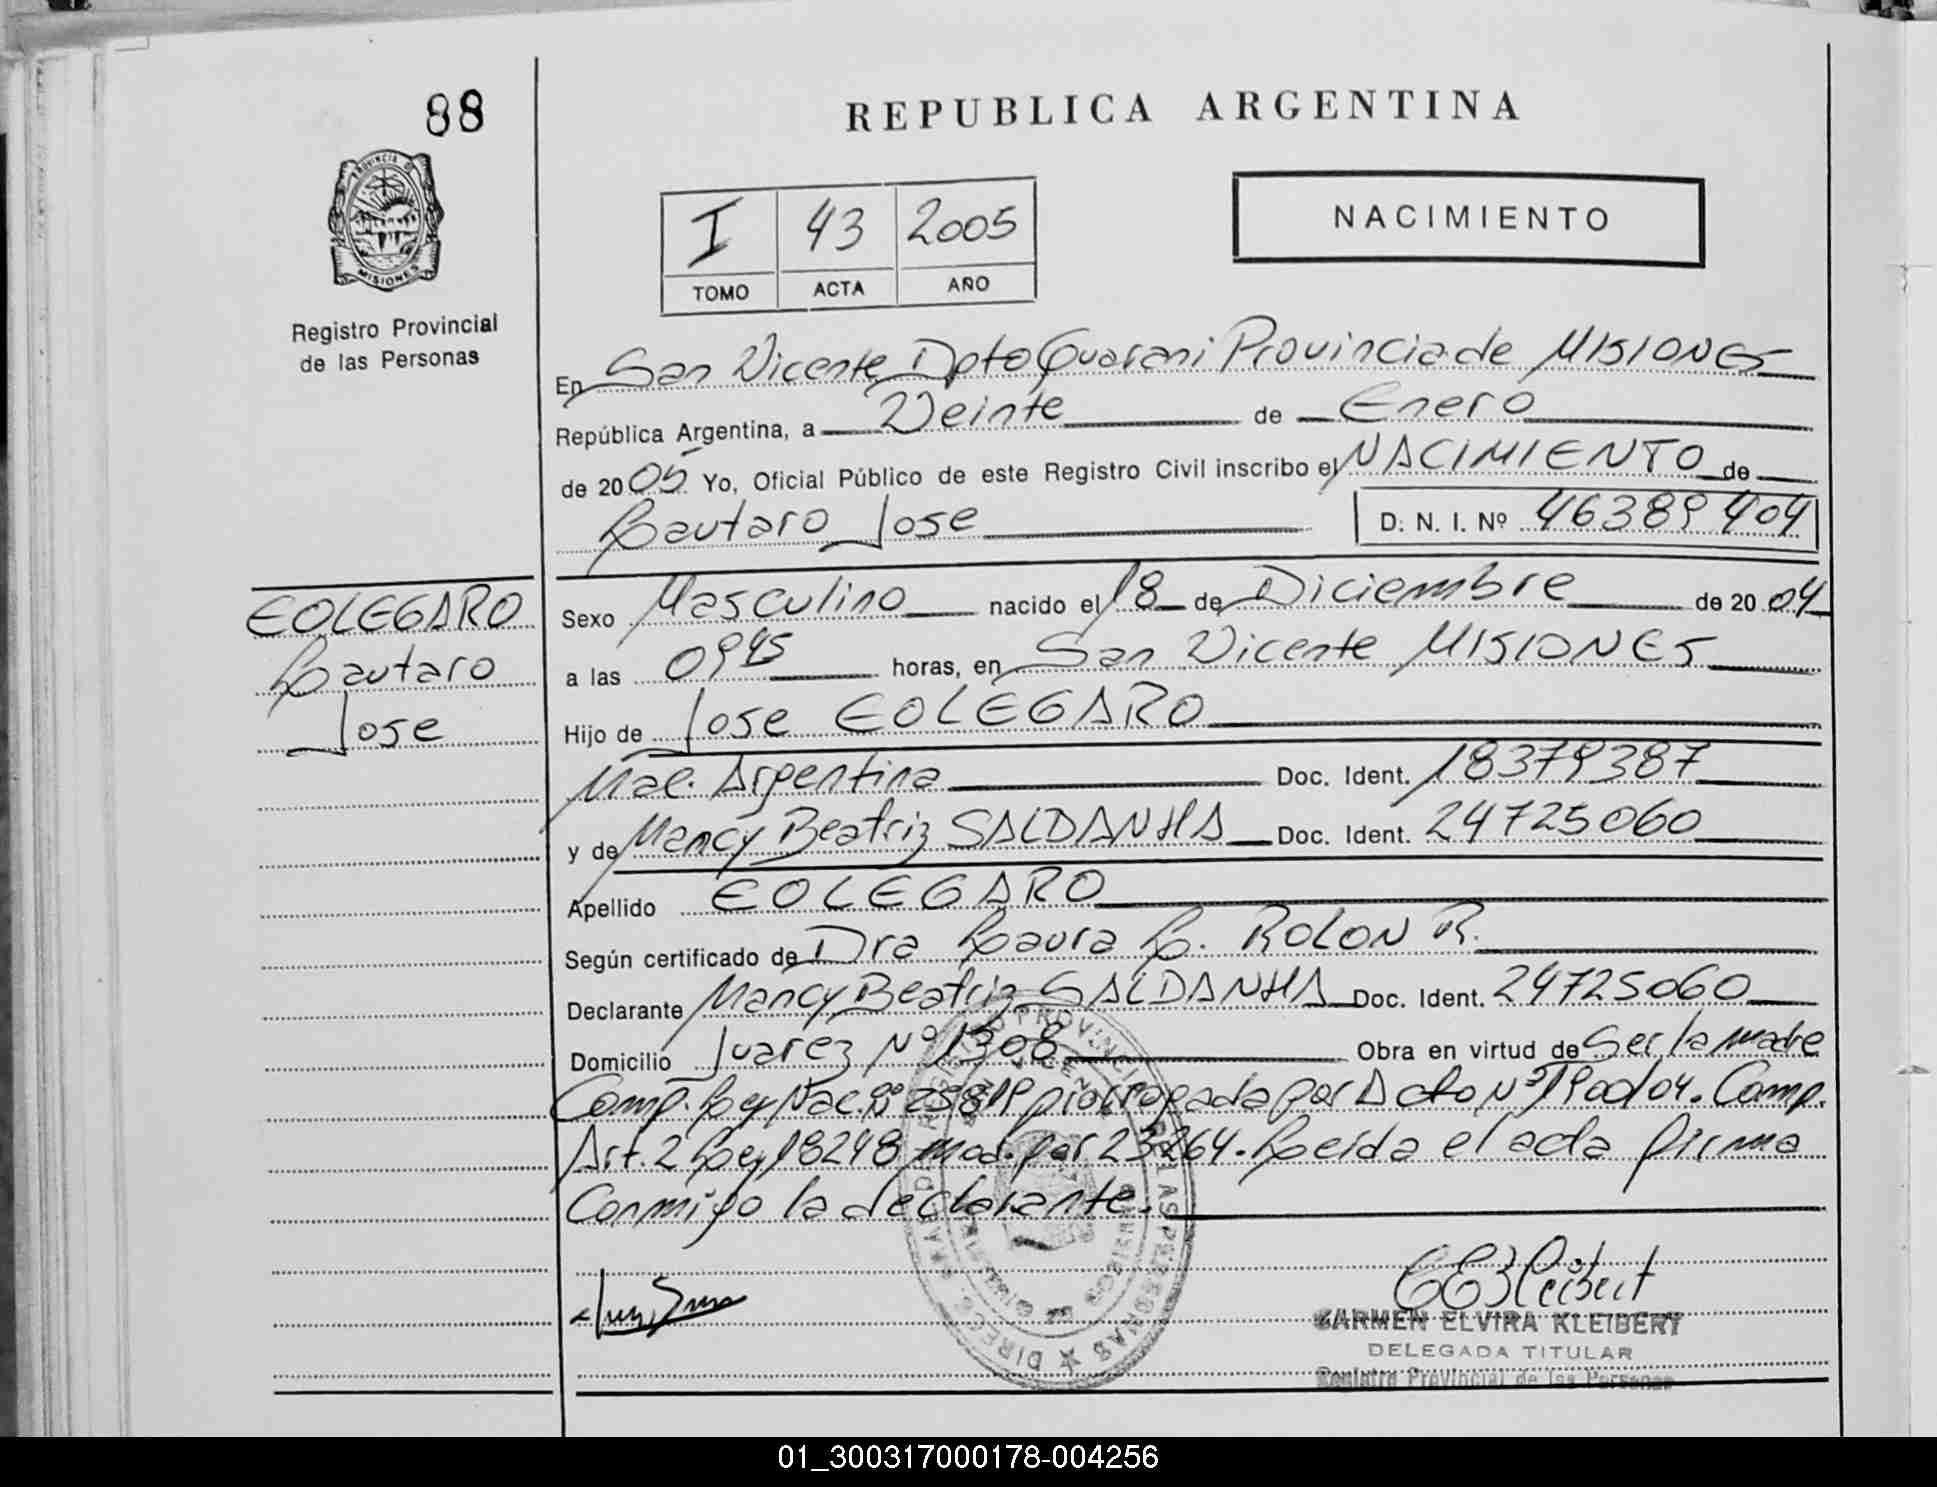 88
REPUBLICA ARGENTINA
PROVINCIA DE
MISIONES
Registro Provincial
de las Personas
I 43 2005
TOMO ACTA AÑO
NACIMIENTO
En San Vicente Dpto Guarani Provincia de MISIONES
República Argentina, a Veinte de Enero
de 2005 Yo, Oficial Público de este Registro Civil inscribo el NACIMIENTO de
Lautaro Jose D. N. I. Nº 46389404
EOLEGARO
Lautaro
Jose
Sexo Masculino nacido el 18 de Diciembre de 2004
a las 0945 horas, en San Vicente MISIONES
Hijo de Jose EOLEGARO
Nac. Argentina Doc. Ident. 18379387
y de Nancy Beatriz SALDANHA Doc. Ident. 24725060
Apellido EOLEGARO
Según certificado de Dra Laura L. ROLON R.
Declarante Nancy Beatriz SALDANHA Doc. Ident. 24725060
Domicilio Juarez Nº 1308 Obra en virtud de Ser la madre
Comp. Ley Nac. Nº prorrogada por Dcto Nº Comp.
Art. 2 Ley 18248 mod. por 23264. Leida el acta firma
Conmigo la declarante.
CARMEN ELVIRA KLEIBERT
DELEGADA TITULAR
Registro Provincial de las Personas
01_300317000178-004256